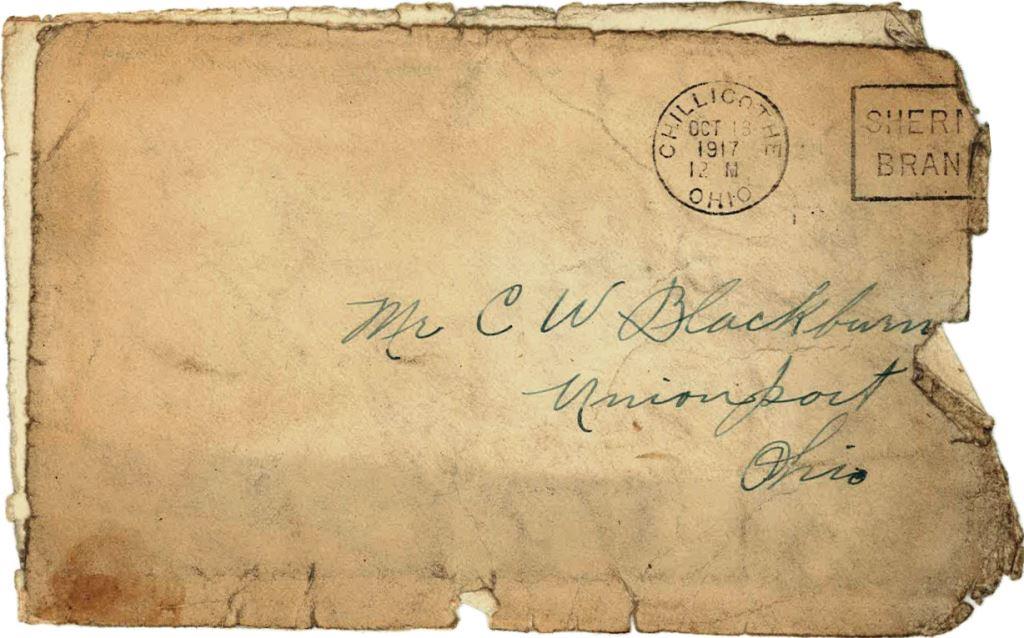 CHILLICOTHE
OCT 13
1917
12 M
OHIO
SHERM
BRAN
Mr C W Blackburn
Unionport
Ohio